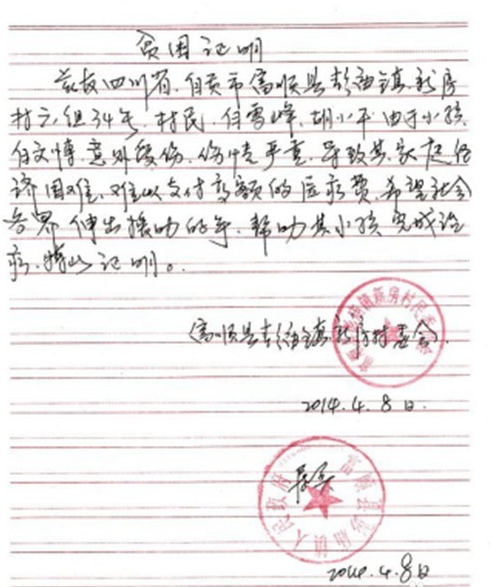 贫困证明
兹有四川省自贡市富顺县彭庙镇新房
村六组34号,村民,何雪峰,胡小平由于小孩
何文博意外烧伤,伤情严重,导致其家庭经
济困难,难以支付高额的医疗费,希望社会
各界伸出援助的手,帮助其小孩完成治
疗,特此证明。
富顺县彭庙镇新房村委会
2014.4.8日.
富顺县彭庙镇人民政府
2014.4.8日